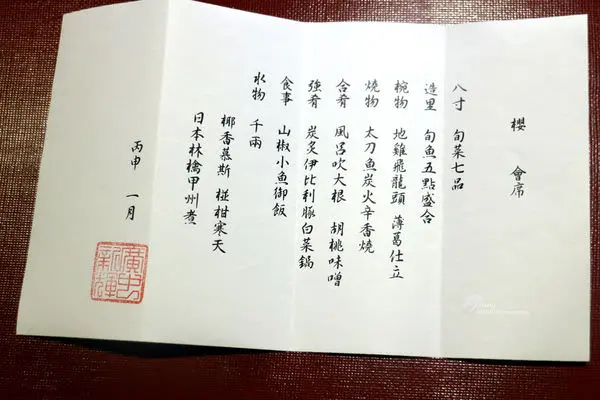 櫻 會席
八寸 旬菜七品
造里 旬魚五點盛合
椀物 地雞飛龍頭 薄葛仕立
燒物 太刀魚炭火辛香燒
合肴 風呂吹大根 胡桃味噌
強肴 炭炙伊比利豚白菜鍋
食事 山椒小魚御飯
水物 千兩
椰香慕斯 椪柑寒天
日本林檎甲州煮
丙申 一月